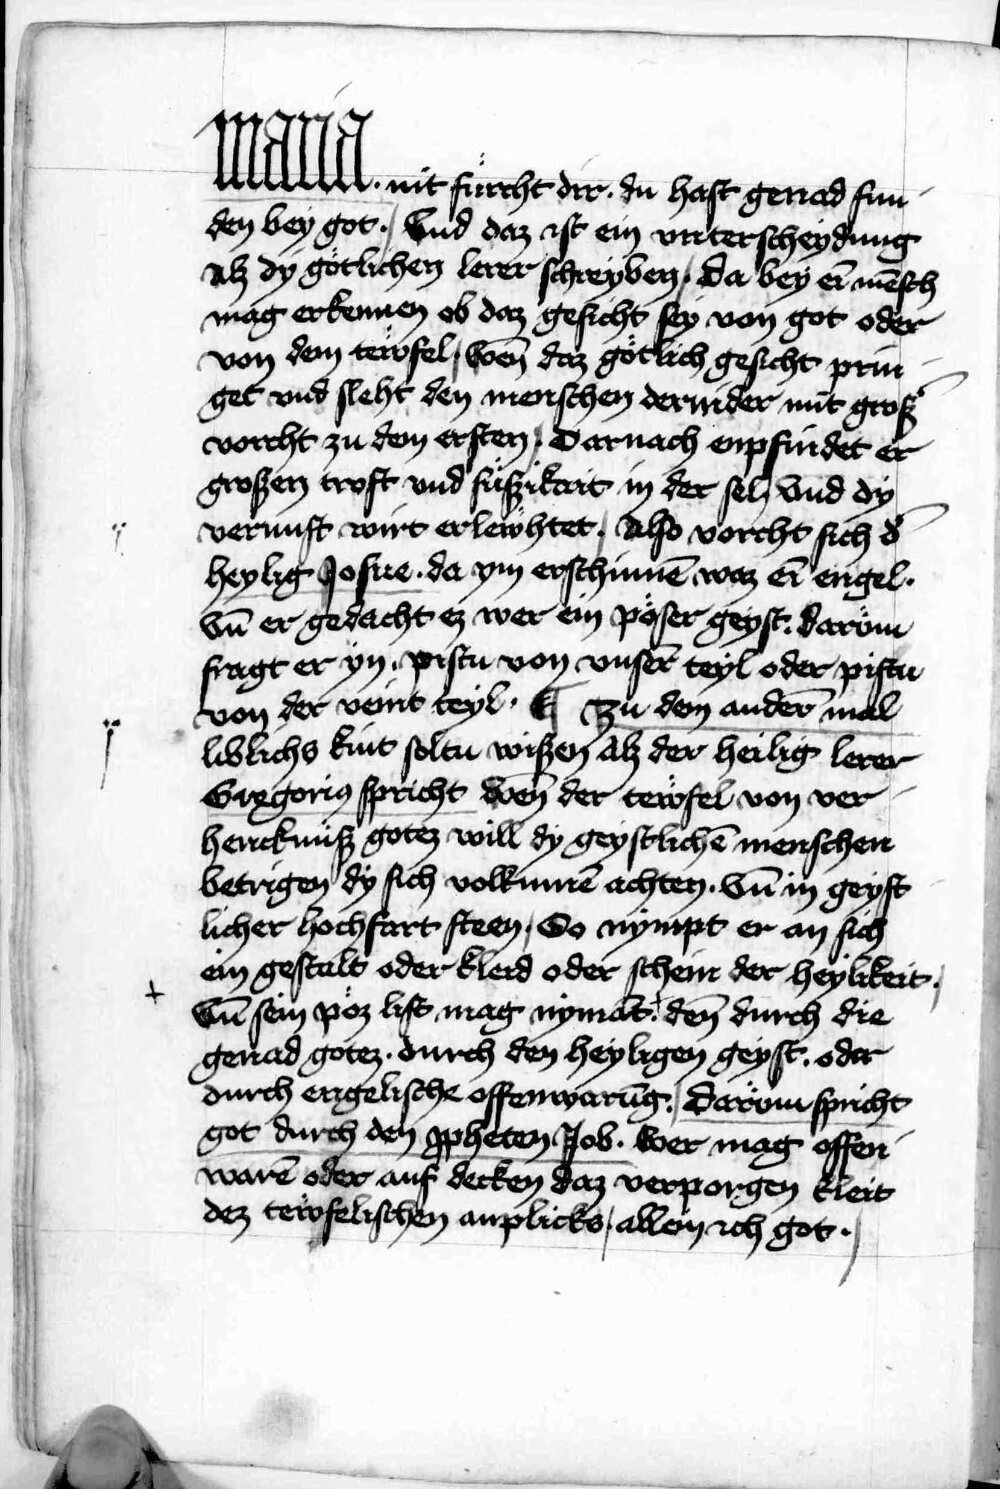 maria. nit fürcht dir. du hast genad fun
den bey got. Vnd daz ist ein vnterscheydung
Alz dy götlichen lerer schreyben. Da bey eī mēsch
mag erkennen ob daz gesicht sey von got oder
von dem tewfel, Wen̄ daz götlich gesicht prin
get vnd sleht den menschen dernider mit groß
vorcht zu dem ersten. Darnach enpfindet er
großen trost vnd süßikeit in der sel, Vnd dy
vernuft wirt erlewhtet. Also vorcht sich d̄
heylig Josue. da ym erschinnē waz eī engel.
Vn̄ er gedacht ez wer ein pöser geyst. darüm
fragt er yn. pistu von vnser̄ teyl oder pistu
von der veint teyl. ¶ Zu dem ander̄ mal
liblichs kint soltu wißen Alz der heilig lerer
Gregorius spricht Wen̄ der tewfel von ver
henckniß gotez will dy geystlichē menschen
betrigen dy sich volkumē achten. Vn̄ in geyst
licher hochfart steen, So nympt er an sich
ein gestalt oder kleid oder schein der heylikeit.
Vn̄ sein pöz list mag nymāt. den̄ durch die
genad gotez. durch den heyligen geyst. oder
durch engelische offenwarūg. Darüm spricht
got durch den ꝓpheten Job. Wer mag offen
warē oder auf decken daz verporgen kleit
dez tewfelischen anplicks, allein ich got.